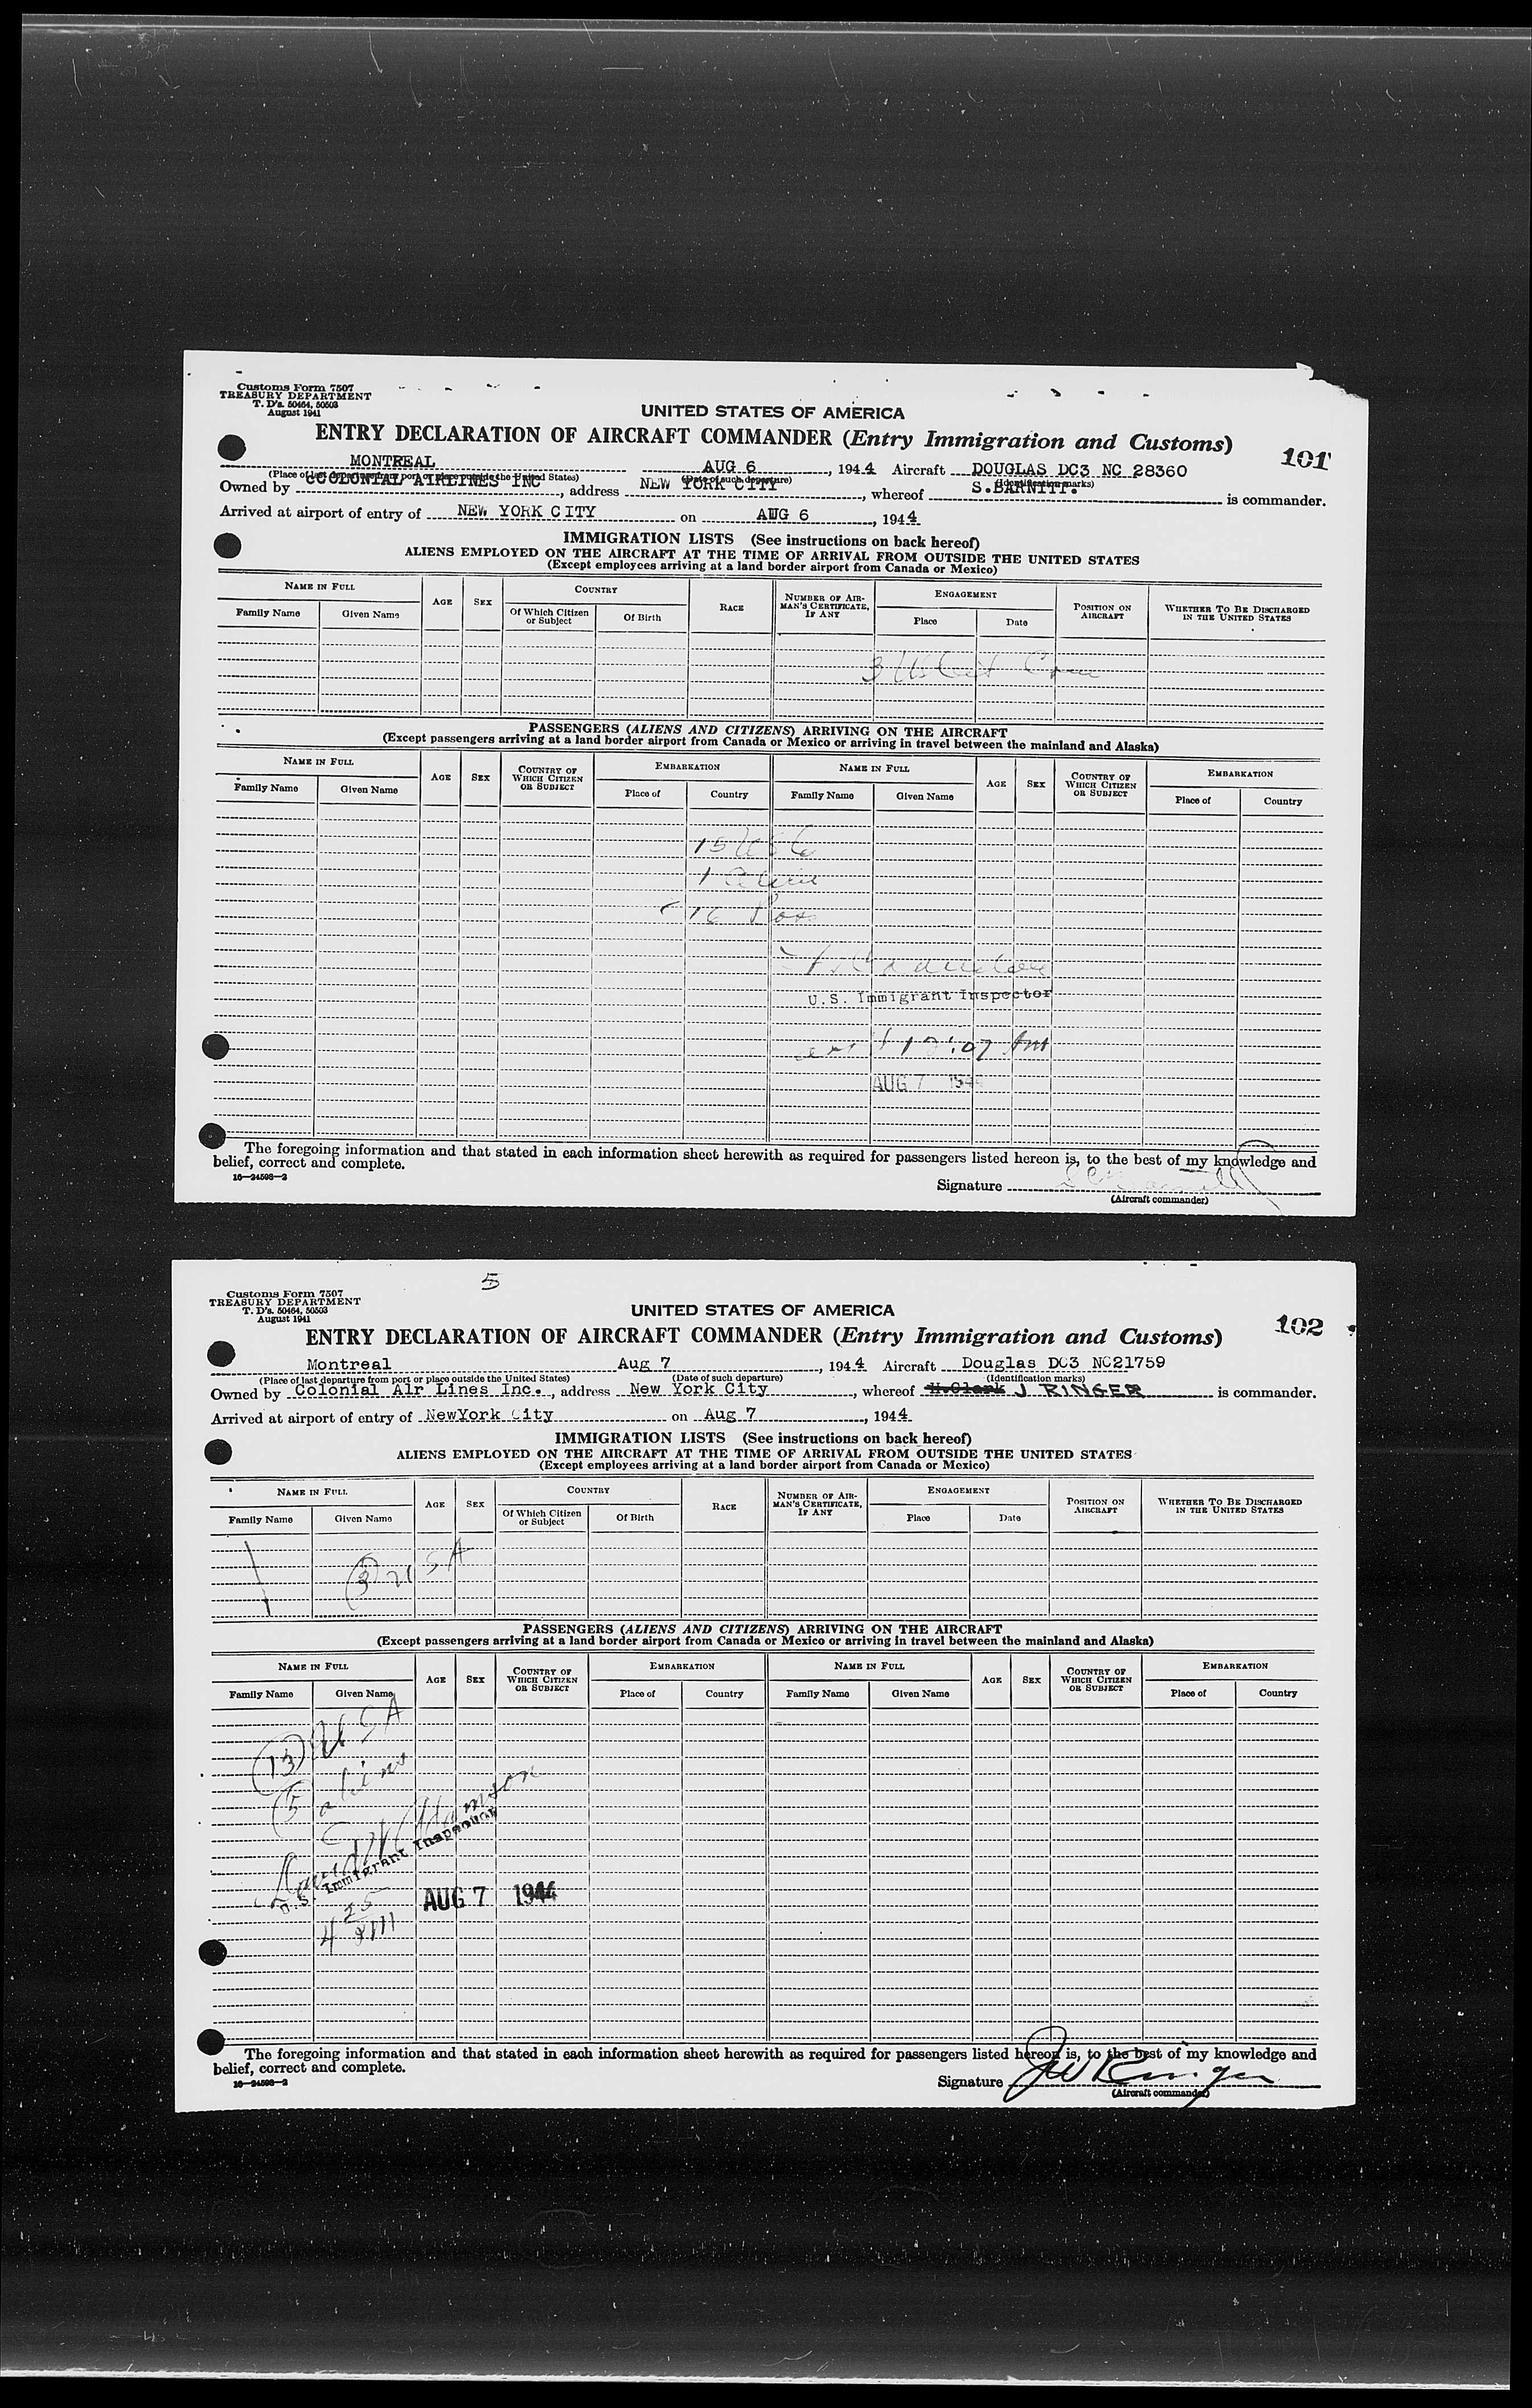 Customs Form 7507
TREASURY DEPARTMENT
T. D's. 50464, 50503
August 1941
UNITED STATES OF AMERICA
ENTRY DECLARATION OF AIRCRAFT COMMANDER (Entry Immigration and Customs)
101
MONTREAL AUG 6, 1944 Aircraft DOUGLAS DC3 NC 28360
(Place of last departure from port or place outside the United States) (Date of such departure) (Identification marks)
Owned by CCOLONIAL AIRLINES INC, address NEW YORK CITY, whereof S.BARNITT. is commander.
Arrived at airport of entry of NEW YORK CITY on AUG 6, 1944
IMMIGRATION LISTS (See instructions on back hereof)
ALIENS EMPLOYED ON THE AIRCRAFT AT THE TIME OF ARRIVAL FROM OUTSIDE THE UNITED STATES
(Except employees arriving at a land border airport from Canada or Mexico)
NAME IN FULL AGE SEX COUNTRY RACE NUMBER OF AIRMAN'S CERTIFICATE, IF ANY ENGAGEMENT POSITION ON AIRCRAFT WHETHER TO BE DISCHARGED IN THE UNITED STATES
Family Name Given Name Of Which Citizen or Subject Of Birth Place Date
3
PASSENGERS (ALIENS AND CITIZENS) ARRIVING ON THE AIRCRAFT
(Except passengers arriving at a land border airport from Canada or Mexico or arriving in travel between the mainland and Alaska)
NAME IN FULL AGE SEX COUNTRY OF WHICH CITIZEN OR SUBJECT EMBARKATION NAME IN FULL AGE SEX COUNTRY OF WHICH CITIZEN OR SUBJECT EMBARKATION
Family Name Given Name Place of Country Family Name Given Name Place of Country
15 USC
1 alien
16 Pass
U.S. Immigrant Inspector
12:07 Am
AUG 7 1944
The foregoing information and that stated in each information sheet herewith as required for passengers listed hereon is, to the best of my knowledge and
belief, correct and complete.
16—24598-2
Signature
(Aircraft commander)
5
Customs Form 7507
TREASURY DEPARTMENT
T. D's. 50464, 50503
August 1941
UNITED STATES OF AMERICA
ENTRY DECLARATION OF AIRCRAFT COMMANDER (Entry Immigration and Customs)
102
Montreal Aug 7, 1944 Aircraft Douglas DC3 NC21759
(Place of last departure from port or place outside the United States) (Date of such departure) (Identification marks)
Owned by Colonial Air Lines Inc., address New York City, whereof H.Clark J RINGER is commander.
Arrived at airport of entry of NewYork City on Aug 7, 1944
IMMIGRATION LISTS (See instructions on back hereof)
ALIENS EMPLOYED ON THE AIRCRAFT AT THE TIME OF ARRIVAL FROM OUTSIDE THE UNITED STATES
(Except employees arriving at a land border airport from Canada or Mexico)
NAME IN FULL AGE SEX COUNTRY RACE NUMBER OF AIRMAN'S CERTIFICATE, IF ANY ENGAGEMENT POSITION ON AIRCRAFT WHETHER TO BE DISCHARGED IN THE UNITED STATES
Family Name Given Name Of Which Citizen or Subject Of Birth Place Date
3 USA
PASSENGERS (ALIENS AND CITIZENS) ARRIVING ON THE AIRCRAFT
(Except passengers arriving at a land border airport from Canada or Mexico or arriving in travel between the mainland and Alaska)
NAME IN FULL AGE SEX COUNTRY OF WHICH CITIZEN OR SUBJECT EMBARKATION NAME IN FULL AGE SEX COUNTRY OF WHICH CITIZEN OR SUBJECT EMBARKATION
Family Name Given Name Place of Country Family Name Given Name Place of Country
13 USA
5 aliens
U.S. Immigrant Inspector
AUG 7 1944
4 25
The foregoing information and that stated in each information sheet herewith as required for passengers listed hereon is, to the best of my knowledge and
belief, correct and complete.
16—24598-2
Signature JW Ringer
(Aircraft commander)